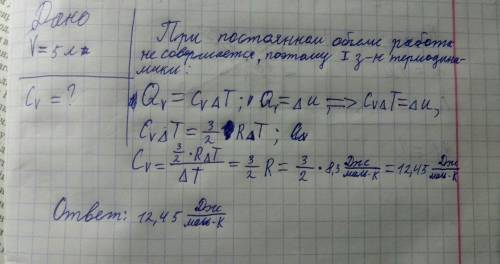 Дано
V = 5 л
Cv = ?
При постоянном объеме работа
не совершается, поэтому I з-н термодина-
мики:
Qv = CvΔT; Qv = Δu, => CvΔT = Δu;
CvΔT = 3/2 RΔT;
Cv = (3/2 · RΔT)/ΔT = 3/2 R = 3/2 · 8,3 Дж/моль·К = 12,45 Дж/моль·К
Ответ: 12,45 Дж/моль·К